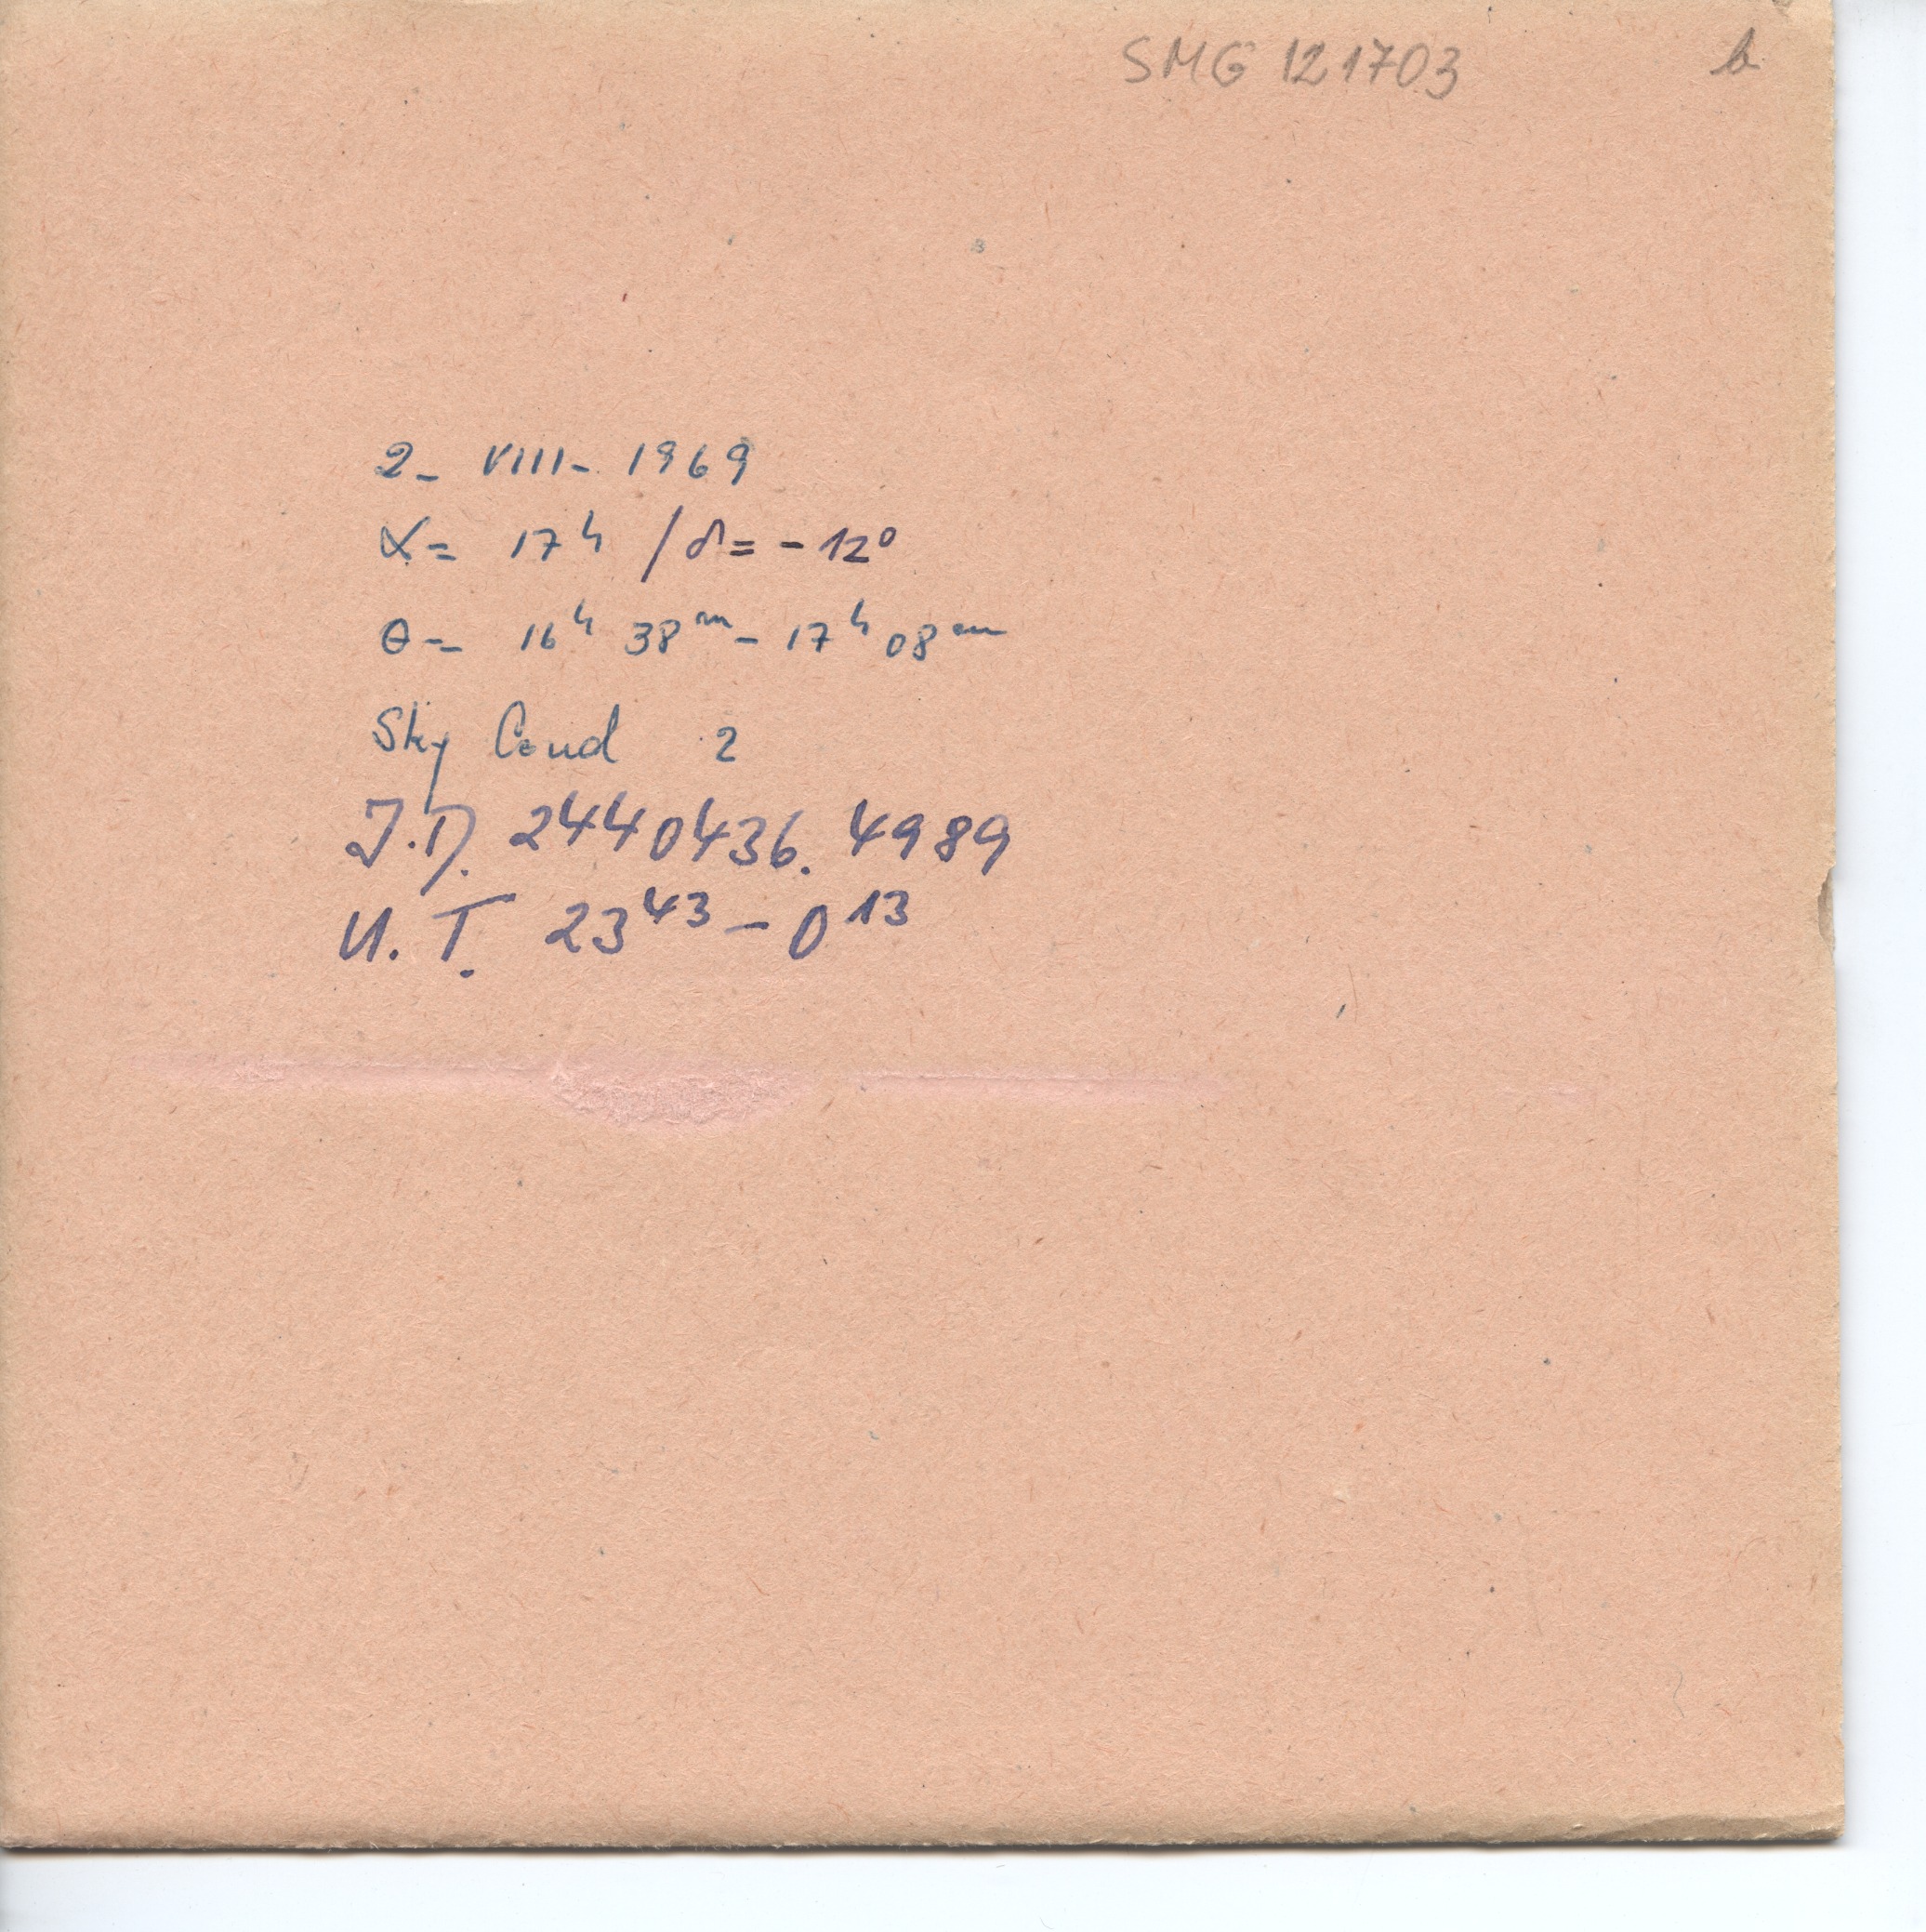 SMG 121703 b
2- VIII- 1969
α= 17ʰ / δ= -12°
θ= 16ʰ 38ᵐ - 17ʰ 08ᵐ
Sky Cond 2
J.D. 2440436.4989
U.T. 23⁴³ - 0¹³